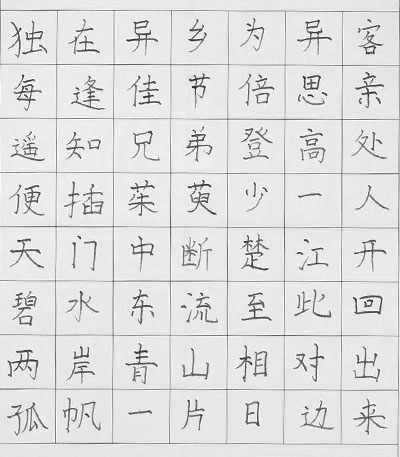 独在异乡为异客
每逢佳节倍思亲
遥知兄弟登高处
便插茱萸少一人
天门中断楚江开
碧水东流至此回
两岸青山相对出
孤帆一片日边来